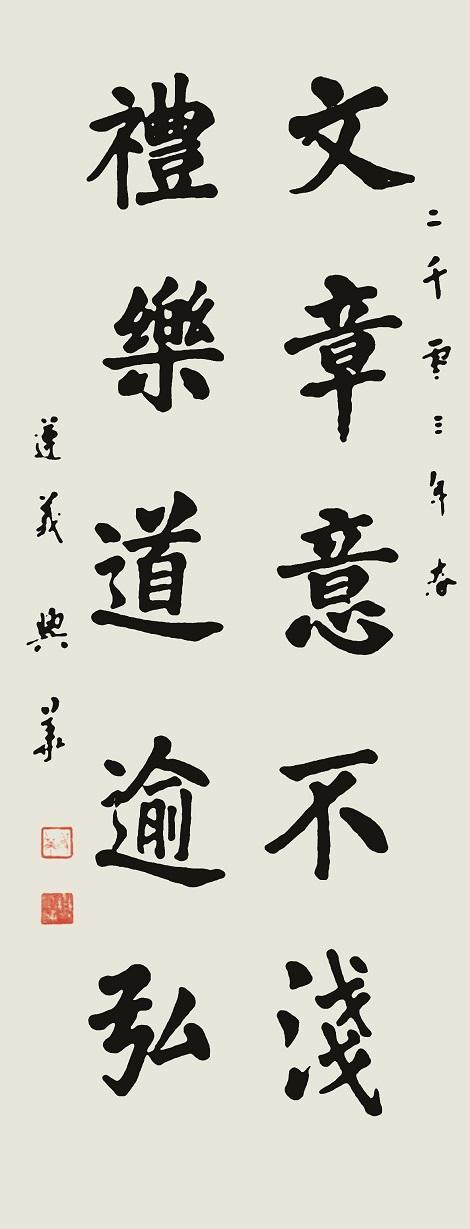 二千零三年春
文章意不淺
禮樂道逾弘
遵義 典華